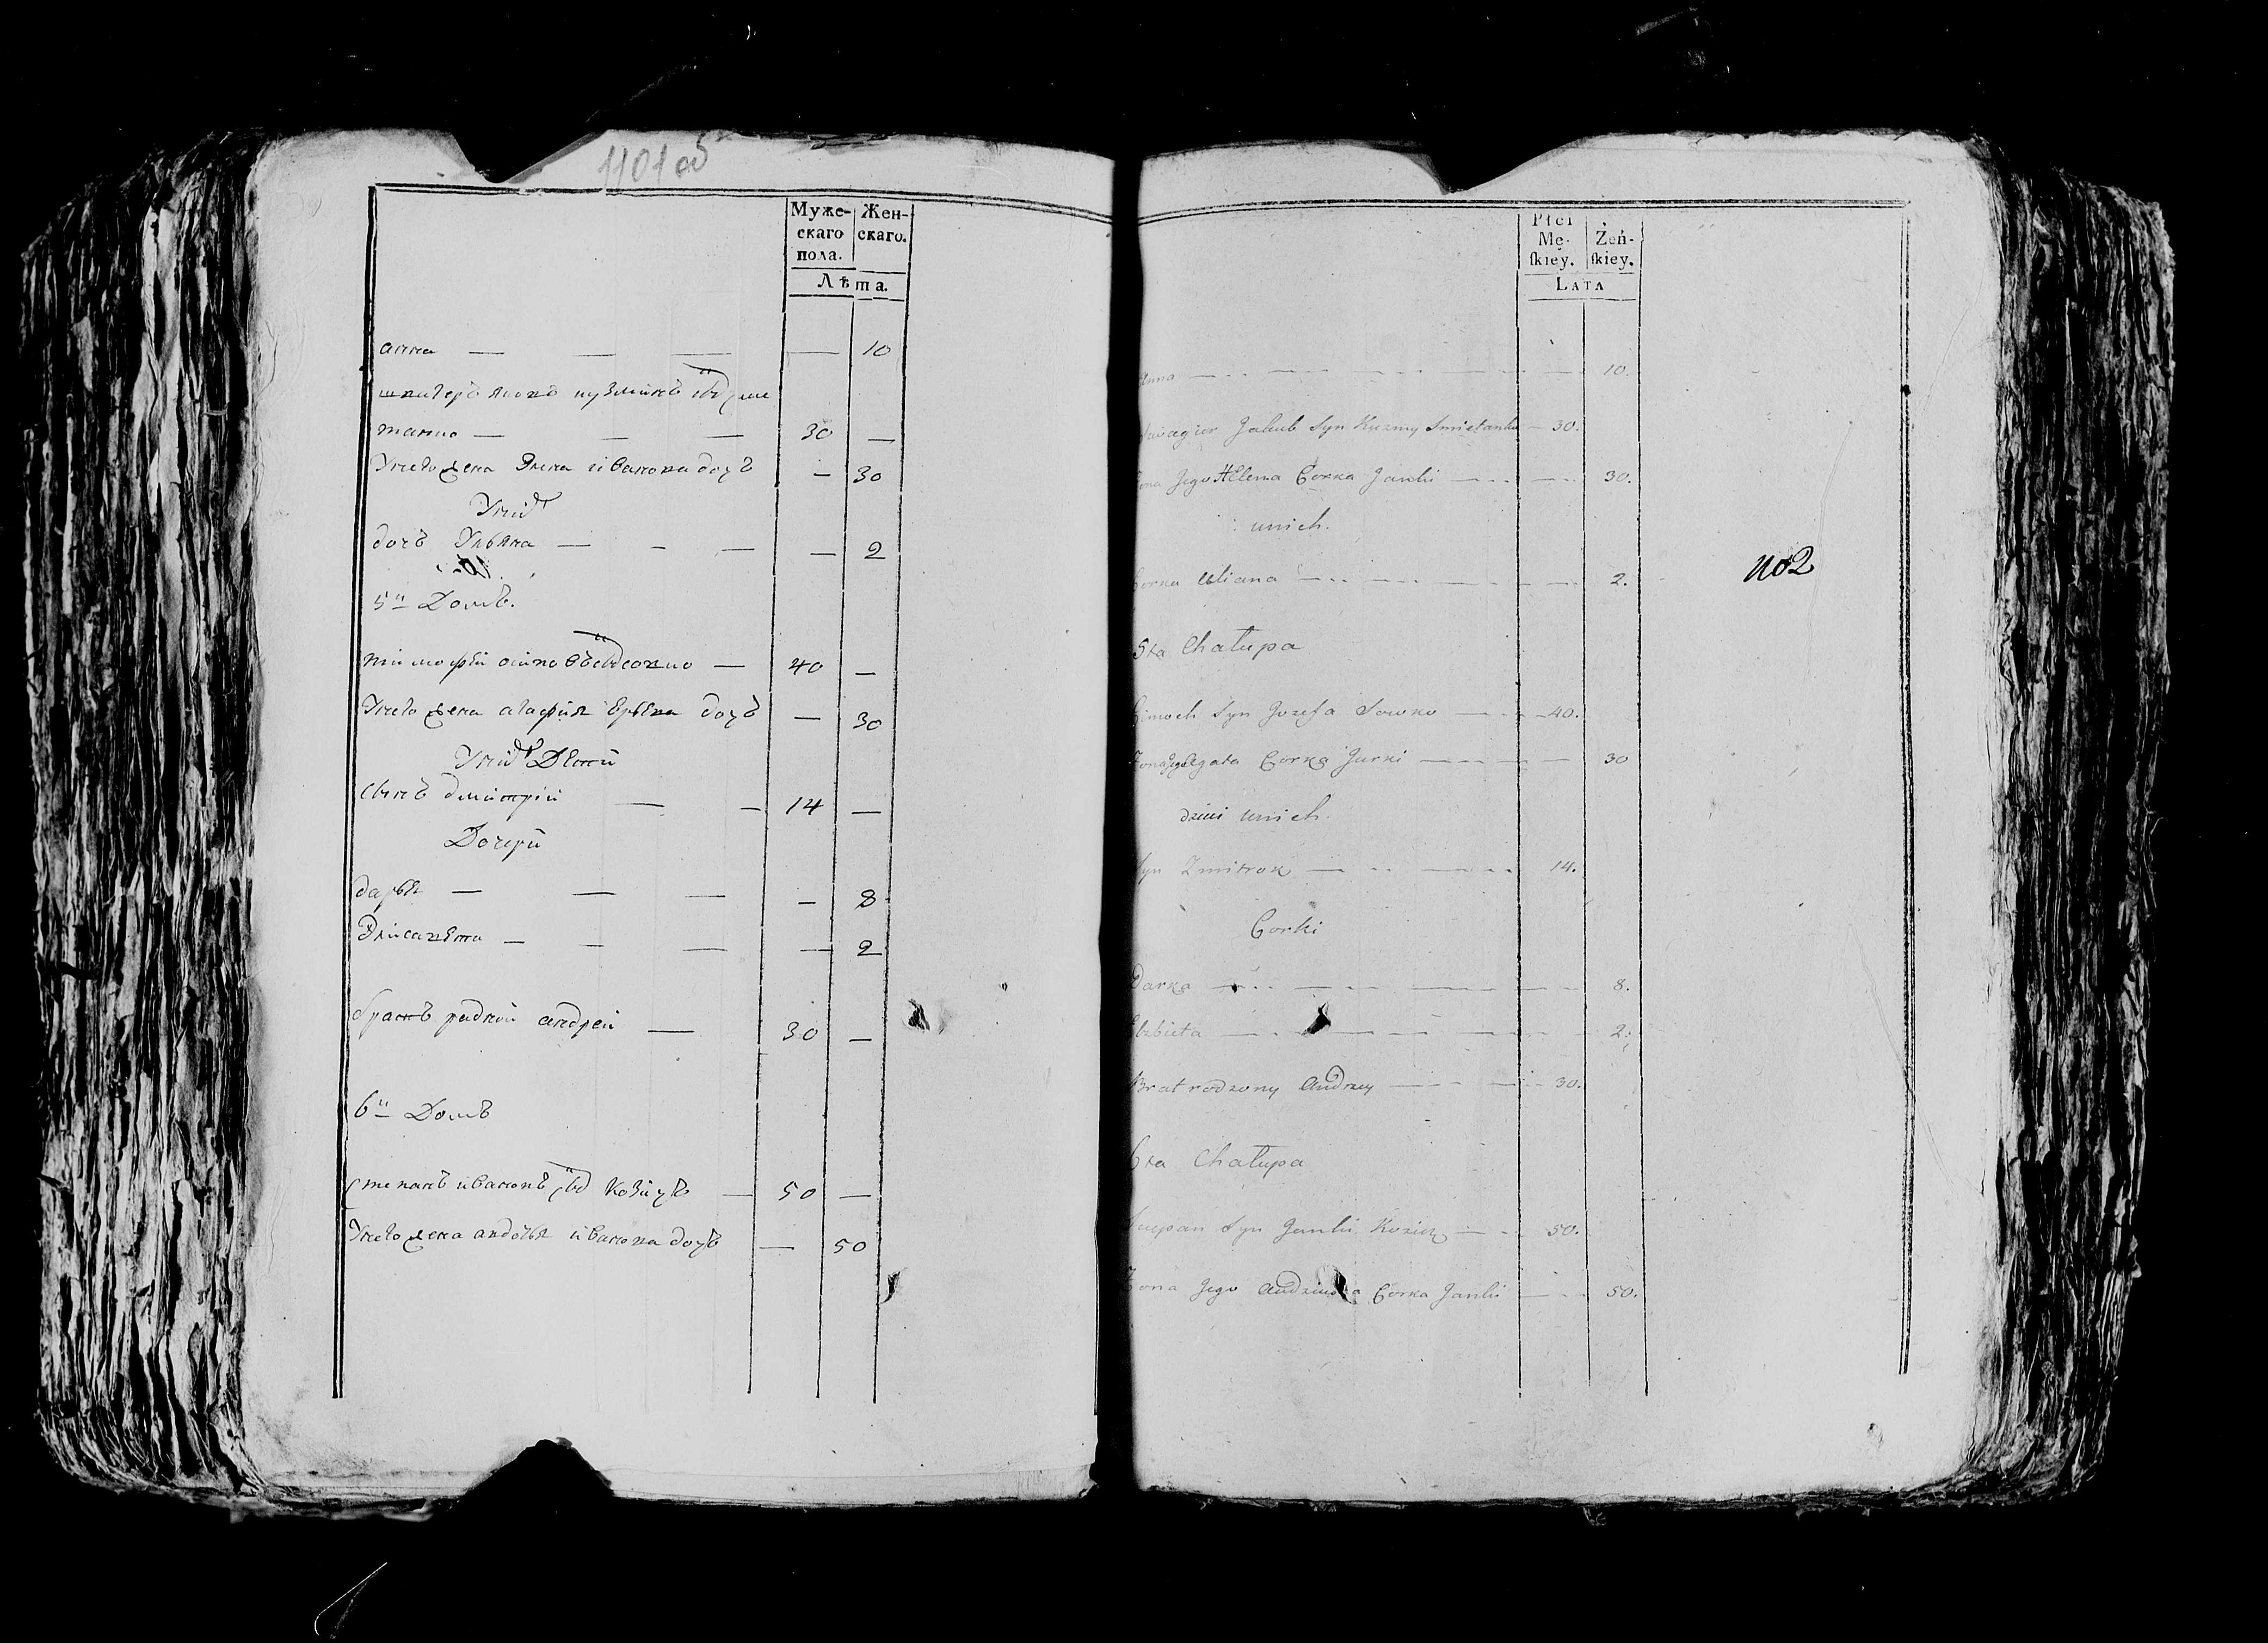 1101 об
Муже-
скаго
пола.
Жен-
скаго.
Лѣта.
анна — — — — 10
швагеръ якобъ кузминъ сынъ сме
танко — — — 30 —
У него жена Елена иванова дочъ — 30
У нихъ
дочъ Ульяна — — — — 2
5й Домъ.
тимофей осиповъ сынъ совко — 40 —
У него жена агафия Юрьева дочъ — 30
У нихъ Дети
сынъ дмитрiй — — 14 —
Дочери
дарья — — — — 8
Элисавета — — — — 2
братъ родной андрей — 30 —
6й Домъ
степанъ ивановъ сынъ козичъ — 50 —
У него жена авдотья иванова дочъ — 50
Płci
Mę-
skiey.
Żeń-
skiey.
LATA
Anna — 10.
Szwagier Jakub Syn Kuzmy Smietanko — 30.
Żona Jego Helena Corka Janki — 30.
unich.
Corka Uliana — 2.
no2
5ta Chałupa
Cimoch Syn Jozefa Sowko — 40.
Żona Jego Agata Corka Jurki — 30
dzieci unich.
Syn Zmitrok — 14.
Corki
Darka — 8.
Elzbieta — 2.
Brat rodzony Andrzey — 30.
6ta Chałupa
Sciepan Syn Janki Kozicz — 50.
Żona Jego Corka Janki — 50.